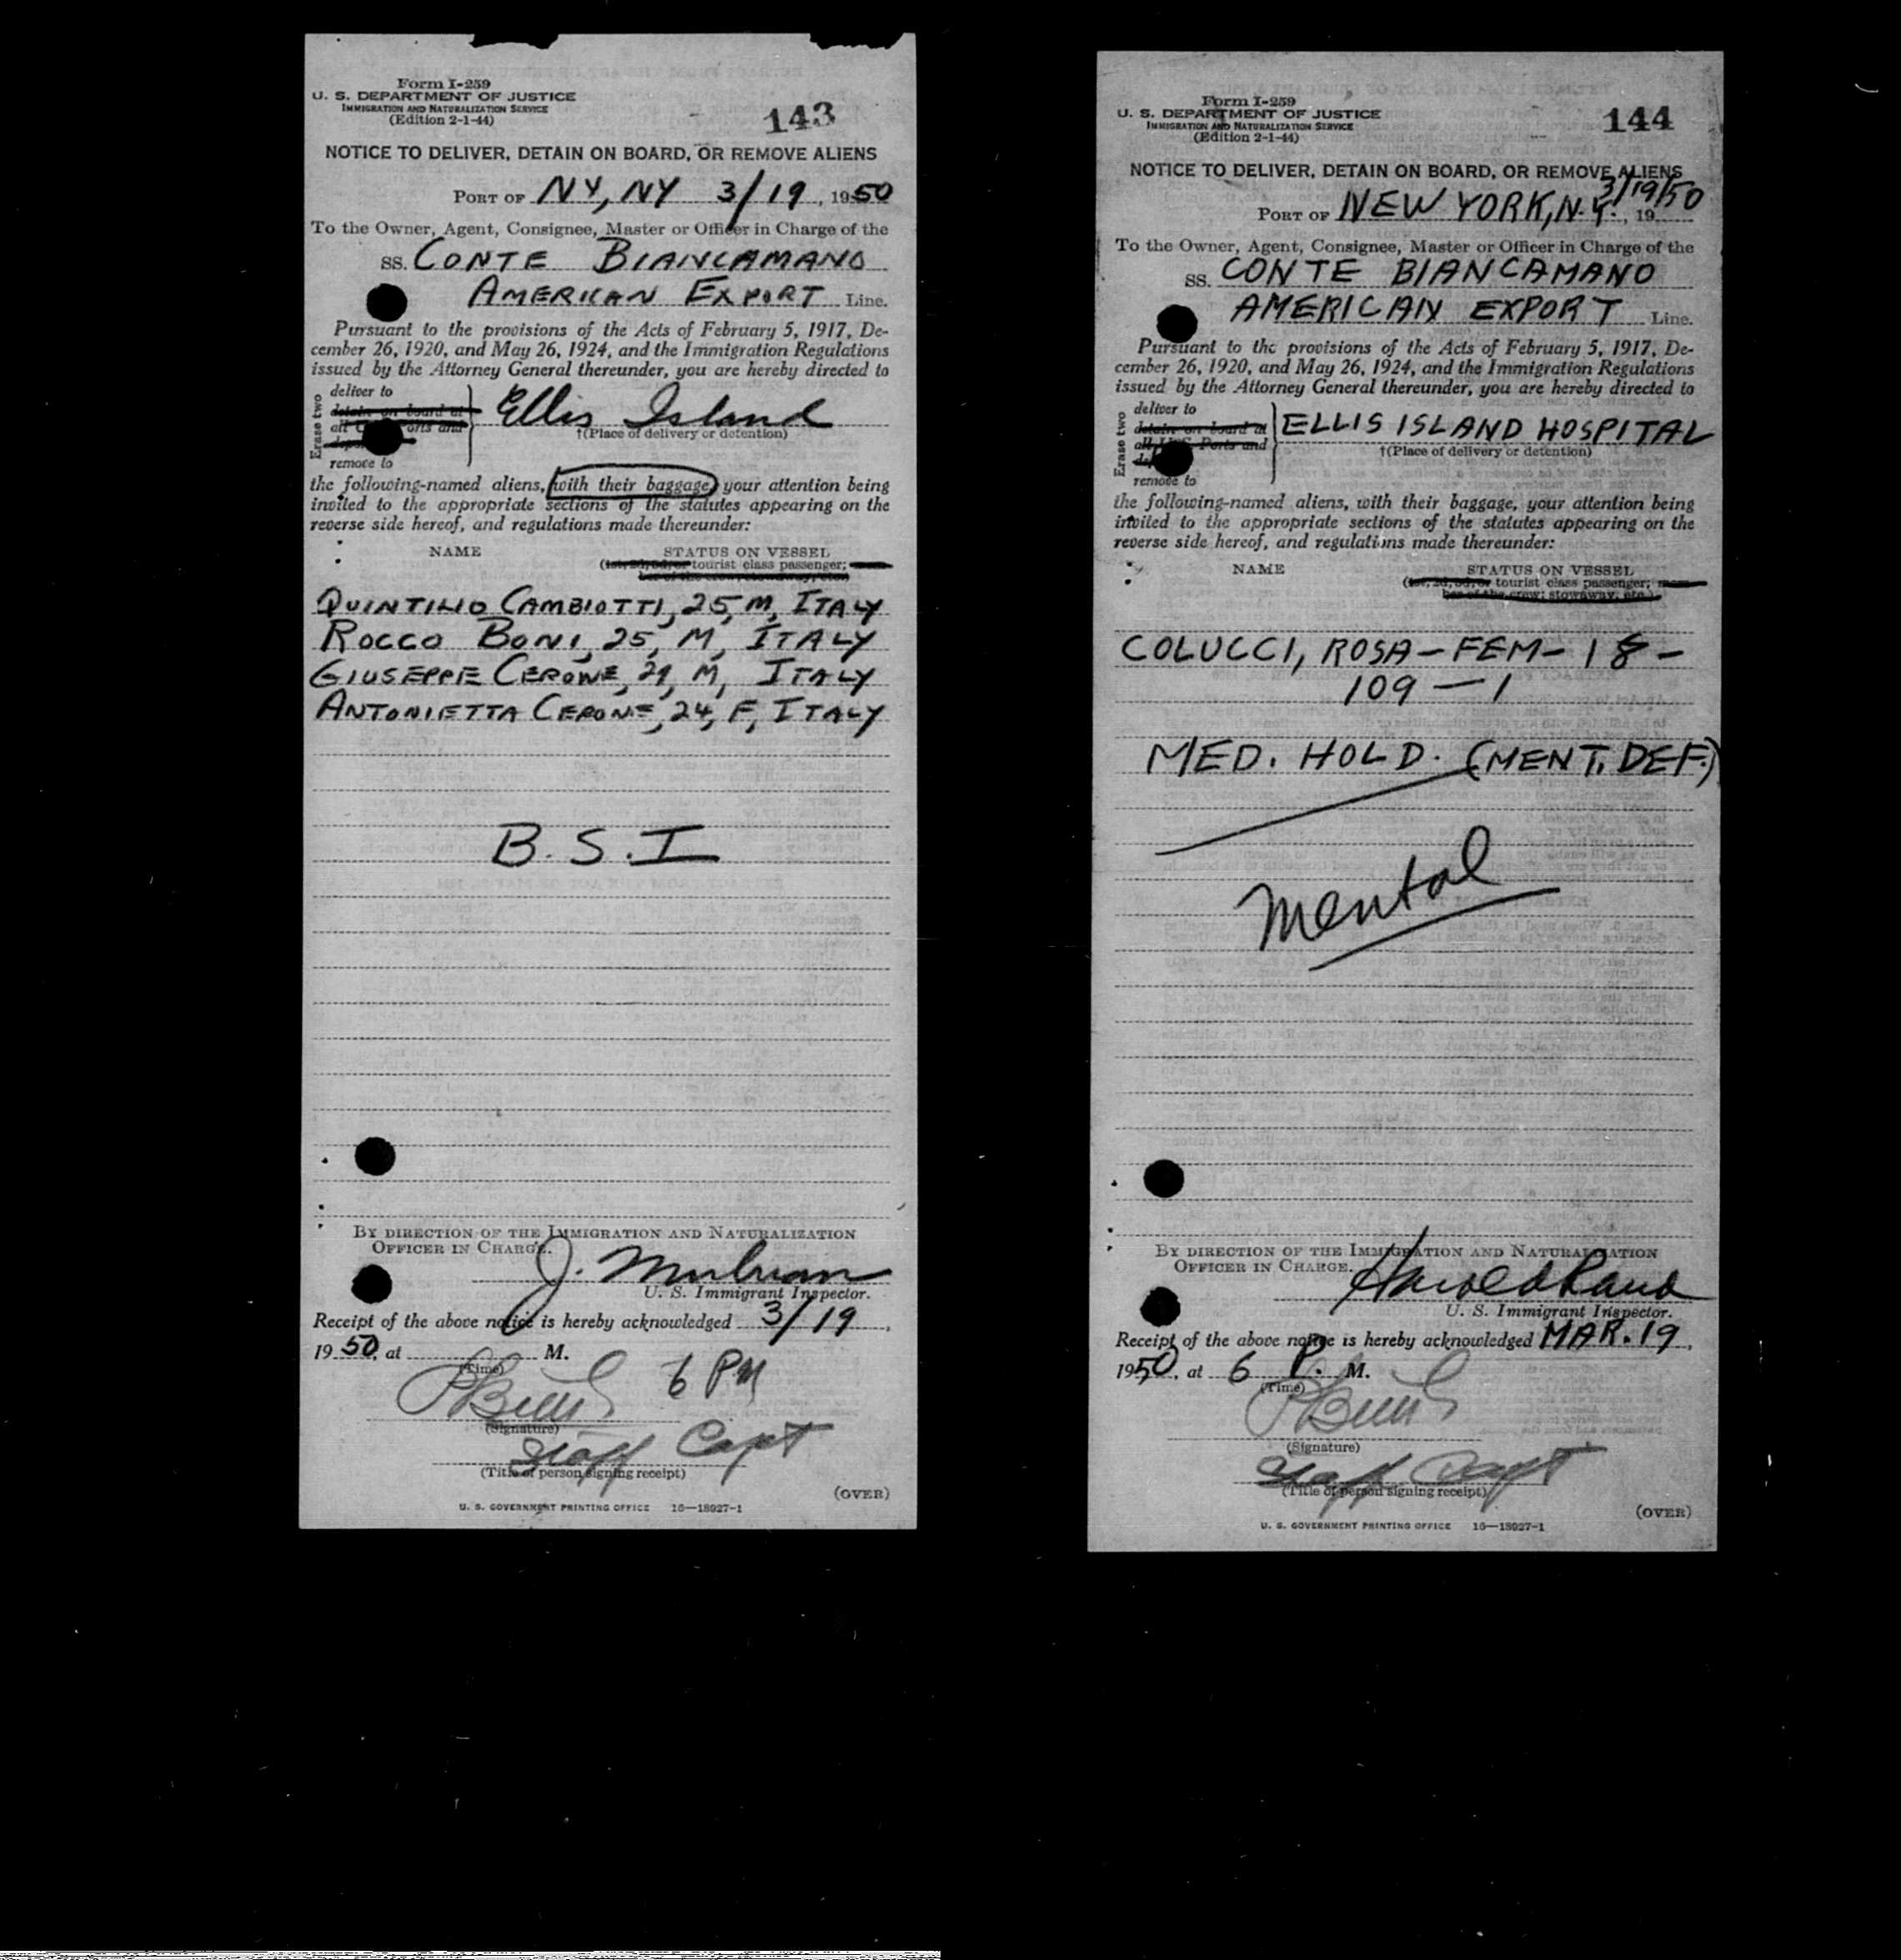 Form I-259
U. S. DEPARTMENT OF JUSTICE
IMMIGRATION AND NATURALIZATION SERVICE
(Edition 2-1-44)
143
NOTICE TO DELIVER, DETAIN ON BOARD, OR REMOVE ALIENS
PORT OF NY, NY 3/19, 1950
To the Owner, Agent, Consignee, Master or Officer in Charge of the
SS. CONTE BIANCAMANO
AMERICAN EXPORT Line.
Pursuant to the provisions of the Acts of February 5, 1917, De-
cember 26, 1920, and May 26, 1924, and the Immigration Regulations
issued by the Attorney General thereunder, you are hereby directed to
Erase two
deliver to
detain on board at
all orts and
remove to
Ellis Island
†(Place of delivery or detention)
the following-named aliens, with their baggage, your attention being
invited to the appropriate sections of the statutes appearing on the
reverse side hereof, and regulations made thereunder:
NAME STATUS ON VESSEL
(1st, 2d, 3d, or tourist class passenger;
ber of the crew; stowaway, etc.)
QUINTILIO CAMBIOTTI, 25, M, ITALY
ROCCO BONI, 25, M, ITALY
GIUSEPPE CERONE, 29, M, ITALY
ANTONIETTA CERONE, 24, F, ITALY
B.S.I
BY DIRECTION OF THE IMMIGRATION AND NATURALIZATION
OFFICER IN CHARGE.
J.
U. S. Immigrant Inspector.
Receipt of the above notice is hereby acknowledged 3/19,
1950, at M.
(Time)
6 PM
(Signature)
Staff Capt
(Title of person signing receipt)
(OVER)
U. S. GOVERNMENT PRINTING OFFICE 16—18927-1
Form I-259
U. S. DEPARTMENT OF JUSTICE
IMMIGRATION AND NATURALIZATION SERVICE
(Edition 2-1-44)
144
NOTICE TO DELIVER, DETAIN ON BOARD, OR REMOVE ALIENS
PORT OF NEW YORK, N.Y., 19 3/19/50
To the Owner, Agent, Consignee, Master or Officer in Charge of the
SS. CONTE BIANCAMANO
AMERICAN EXPORT Line.
Pursuant to the provisions of the Acts of February 5, 1917, De-
cember 26, 1920, and May 26, 1924, and the Immigration Regulations
issued by the Attorney General thereunder, you are hereby directed to
Erase two
deliver to
detain on board at
all U.S. Ports and
remove to
ELLIS ISLAND HOSPITAL
†(Place of delivery or detention)
the following-named aliens, with their baggage, your attention being
invited to the appropriate sections of the statutes appearing on the
reverse side hereof, and regulations made thereunder:
NAME STATUS ON VESSEL
(1st, 2d, 3d, or tourist class passenger; mem-
ber of the crew; stowaway, etc.)
COLUCCI, ROSA - FEM - 18 -
109 - 1
MED. HOLD. (MENT. DEF.)
Mental
BY DIRECTION OF THE IMMIGRATION AND NATURALIZATION
OFFICER IN CHARGE.
Harold Rand
U. S. Immigrant Inspector.
Receipt of the above notice is hereby acknowledged MAR. 19,
1950, at 6 P. M.
(Time)
(Signature)
Staff Capt
(Title of person signing receipt)
(OVER)
U. S. GOVERNMENT PRINTING OFFICE 16—18927-1